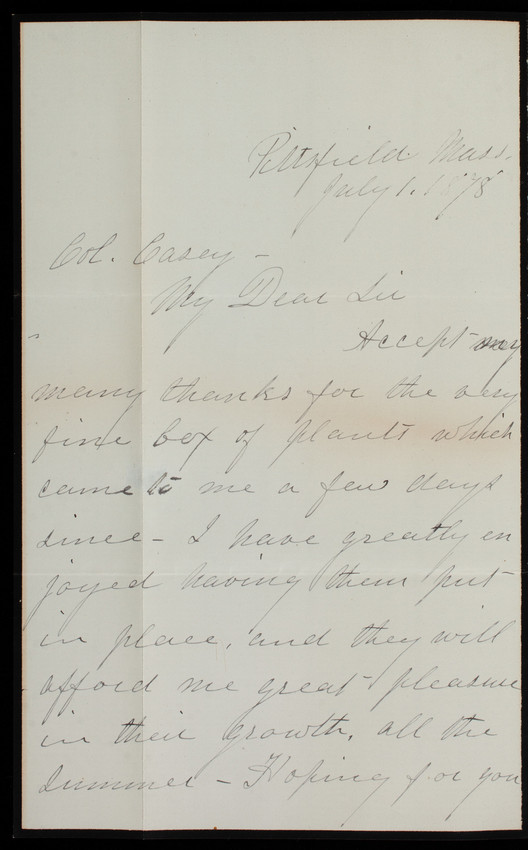 Pittsfield Mass.
July 1. 1878
Col. Casey -
My Dear Sir
Accept my
many thanks for the very
fine box of plants which
came to me a few days
since - I have greatly en
joyed having them put
in place, and they will
afford me great pleasure
in their growth, all the
summer - Hoping for you